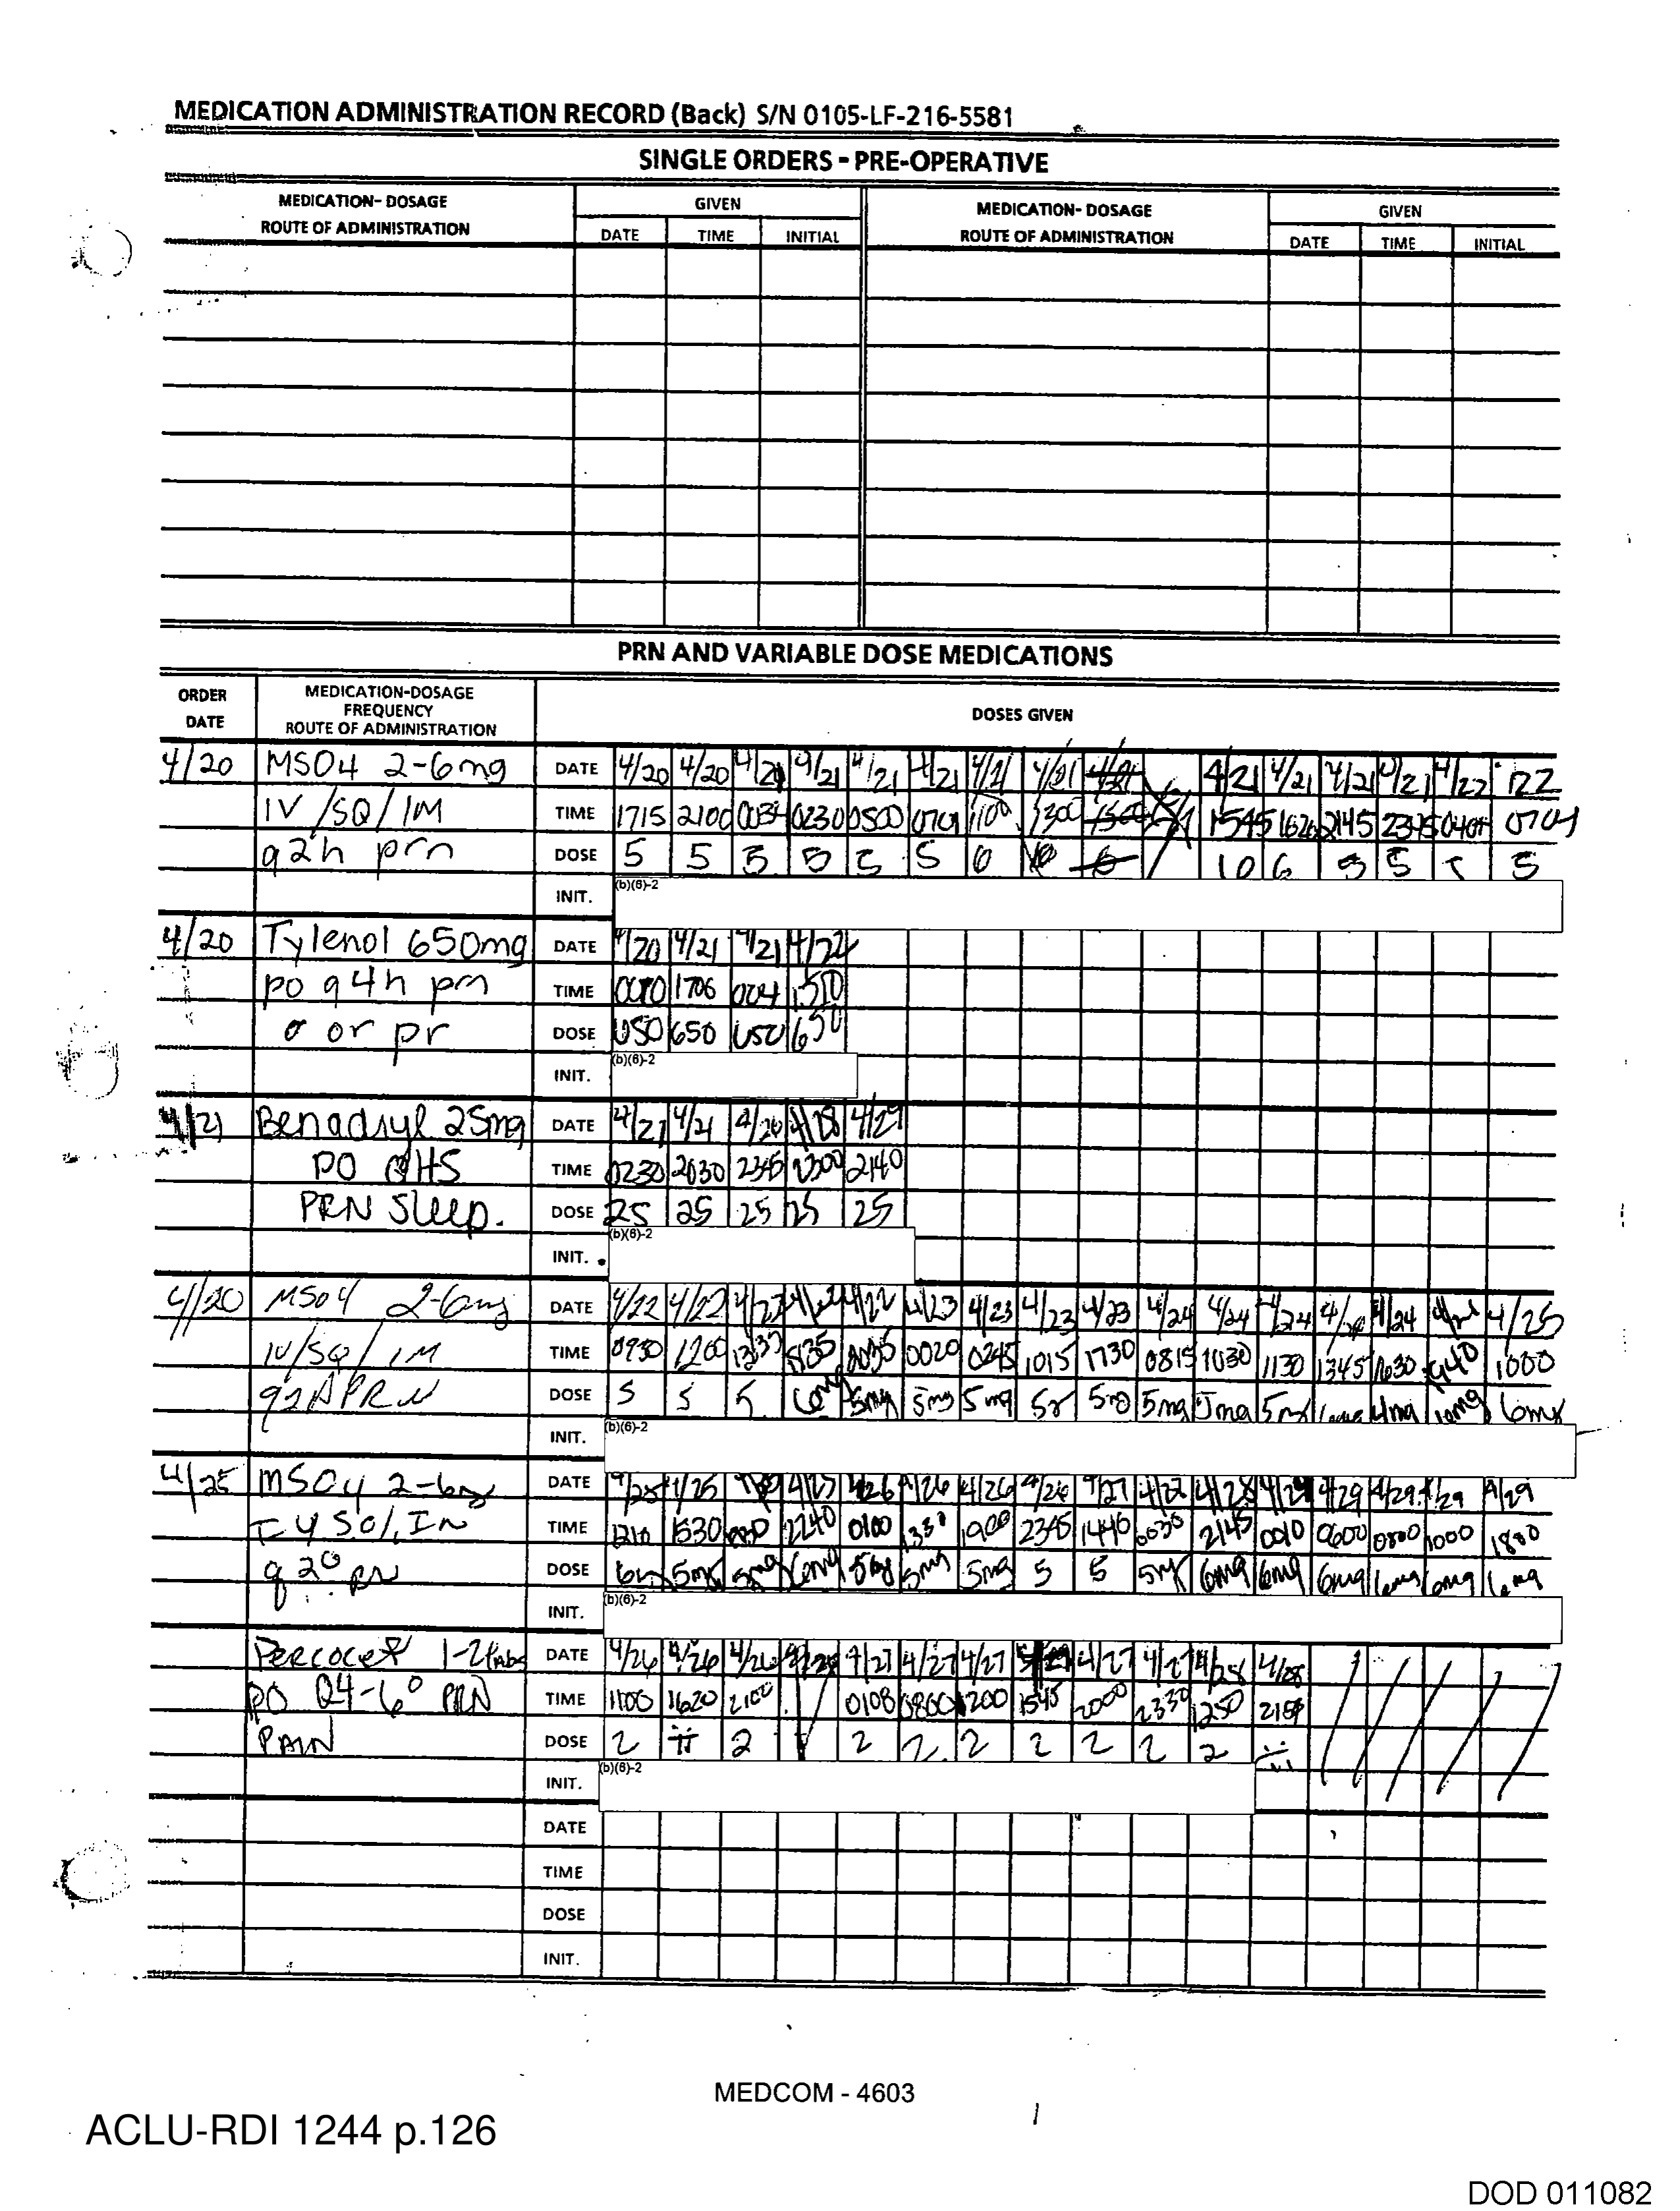 MEDICATION ADMINISTRATION RECORD (Back) S/N 0105-LF-216-5581
SINGLE ORDERS - PRE-OPERATIVE
MEDICATION- DOSAGE GIVEN MEDICATION- DOSAGE GIVEN
ROUTE OF ADMINISTRATION DATE TIME INITIAL ROUTE OF ADMINISTRATION DATE TIME INITIAL
PRN AND VARIABLE DOSE MEDICATIONS
ORDER DATE MEDICATION-DOSAGE FREQUENCY ROUTE OF ADMINISTRATION DOSES GIVEN
4/20 MSO4 2-6mg DATE 4/20 4/20 4/21 4/21 4/21 4/21 4/21 4/21 4/21 4/21 4/21 4/22
IV/SQ/IM TIME 1715 2100 0034 0230 0500 0701 1100 1300 1500 1545 2145 2345 0704
q2h prn DOSE 5 5 5 5 5 5 6 6 10 6 5 5 5 5
INIT. (b)(6)-2
4/20 Tylenol 650mg DATE 4/20 4/21 4/21 4/22
po q4h prn TIME 1706 1510
or pr DOSE 650 650 650 650
INIT. (b)(6)-2
4/21 Benadryl 25mg DATE 4/21 4/21 4/26 4/28 4/29
PO QHS TIME 0230 2030 2345 2300 2140
PRN Sleep. DOSE 25 25 25 25 25
INIT. (b)(6)-2
4/20 MSO4 2-6mg DATE 4/22 4/22 4/22 4/23 4/23 4/23 4/23 4/24 4/24 4/24 4/24 4/24 4/25
IV/SQ/IM TIME 0930 1200 0020 0245 1015 1730 0815 1030 1130 1345 1630 1000
q2h PRN DOSE 5 5 5 6mg 5mg 5mg 5mg 5mg 5mg 5mg 4mg 6mg
INIT. (b)(6)-2
4/25 MSO4 2-6mg DATE 4/25 4/25 4/25 4/26 4/26 4/26 4/26 4/27 4/28 4/29 4/29 4/29 4/29 4/29
TIME 1210 1530 2240 0100 1330 1900 2345 1440 0030 2145 0010 0600 0800 1000 1800
q 2° prn DOSE 5mg 5mg 6mg 5mg 5mg 5mg 5 5 5mg 6mg 6mg 6mg 6mg 6mg 6mg
INIT. (b)(6)-2
Percocet 1-2 tabs DATE 4/26 4/26 4/26 4/27 4/27 4/27 4/27 4/27 4/28 4/28
PO Q4-6° PRN TIME 1100 1620 2100 0108 0800 1200 1545 2000 2330 1250
PAIN DOSE 2 ii 2 2 2 2 2 2 2 2 ii
INIT. (b)(6)-2
DATE
TIME
DOSE
INIT.
MEDCOM - 4603
ACLU-RDI 1244 p.126
DOD 011082